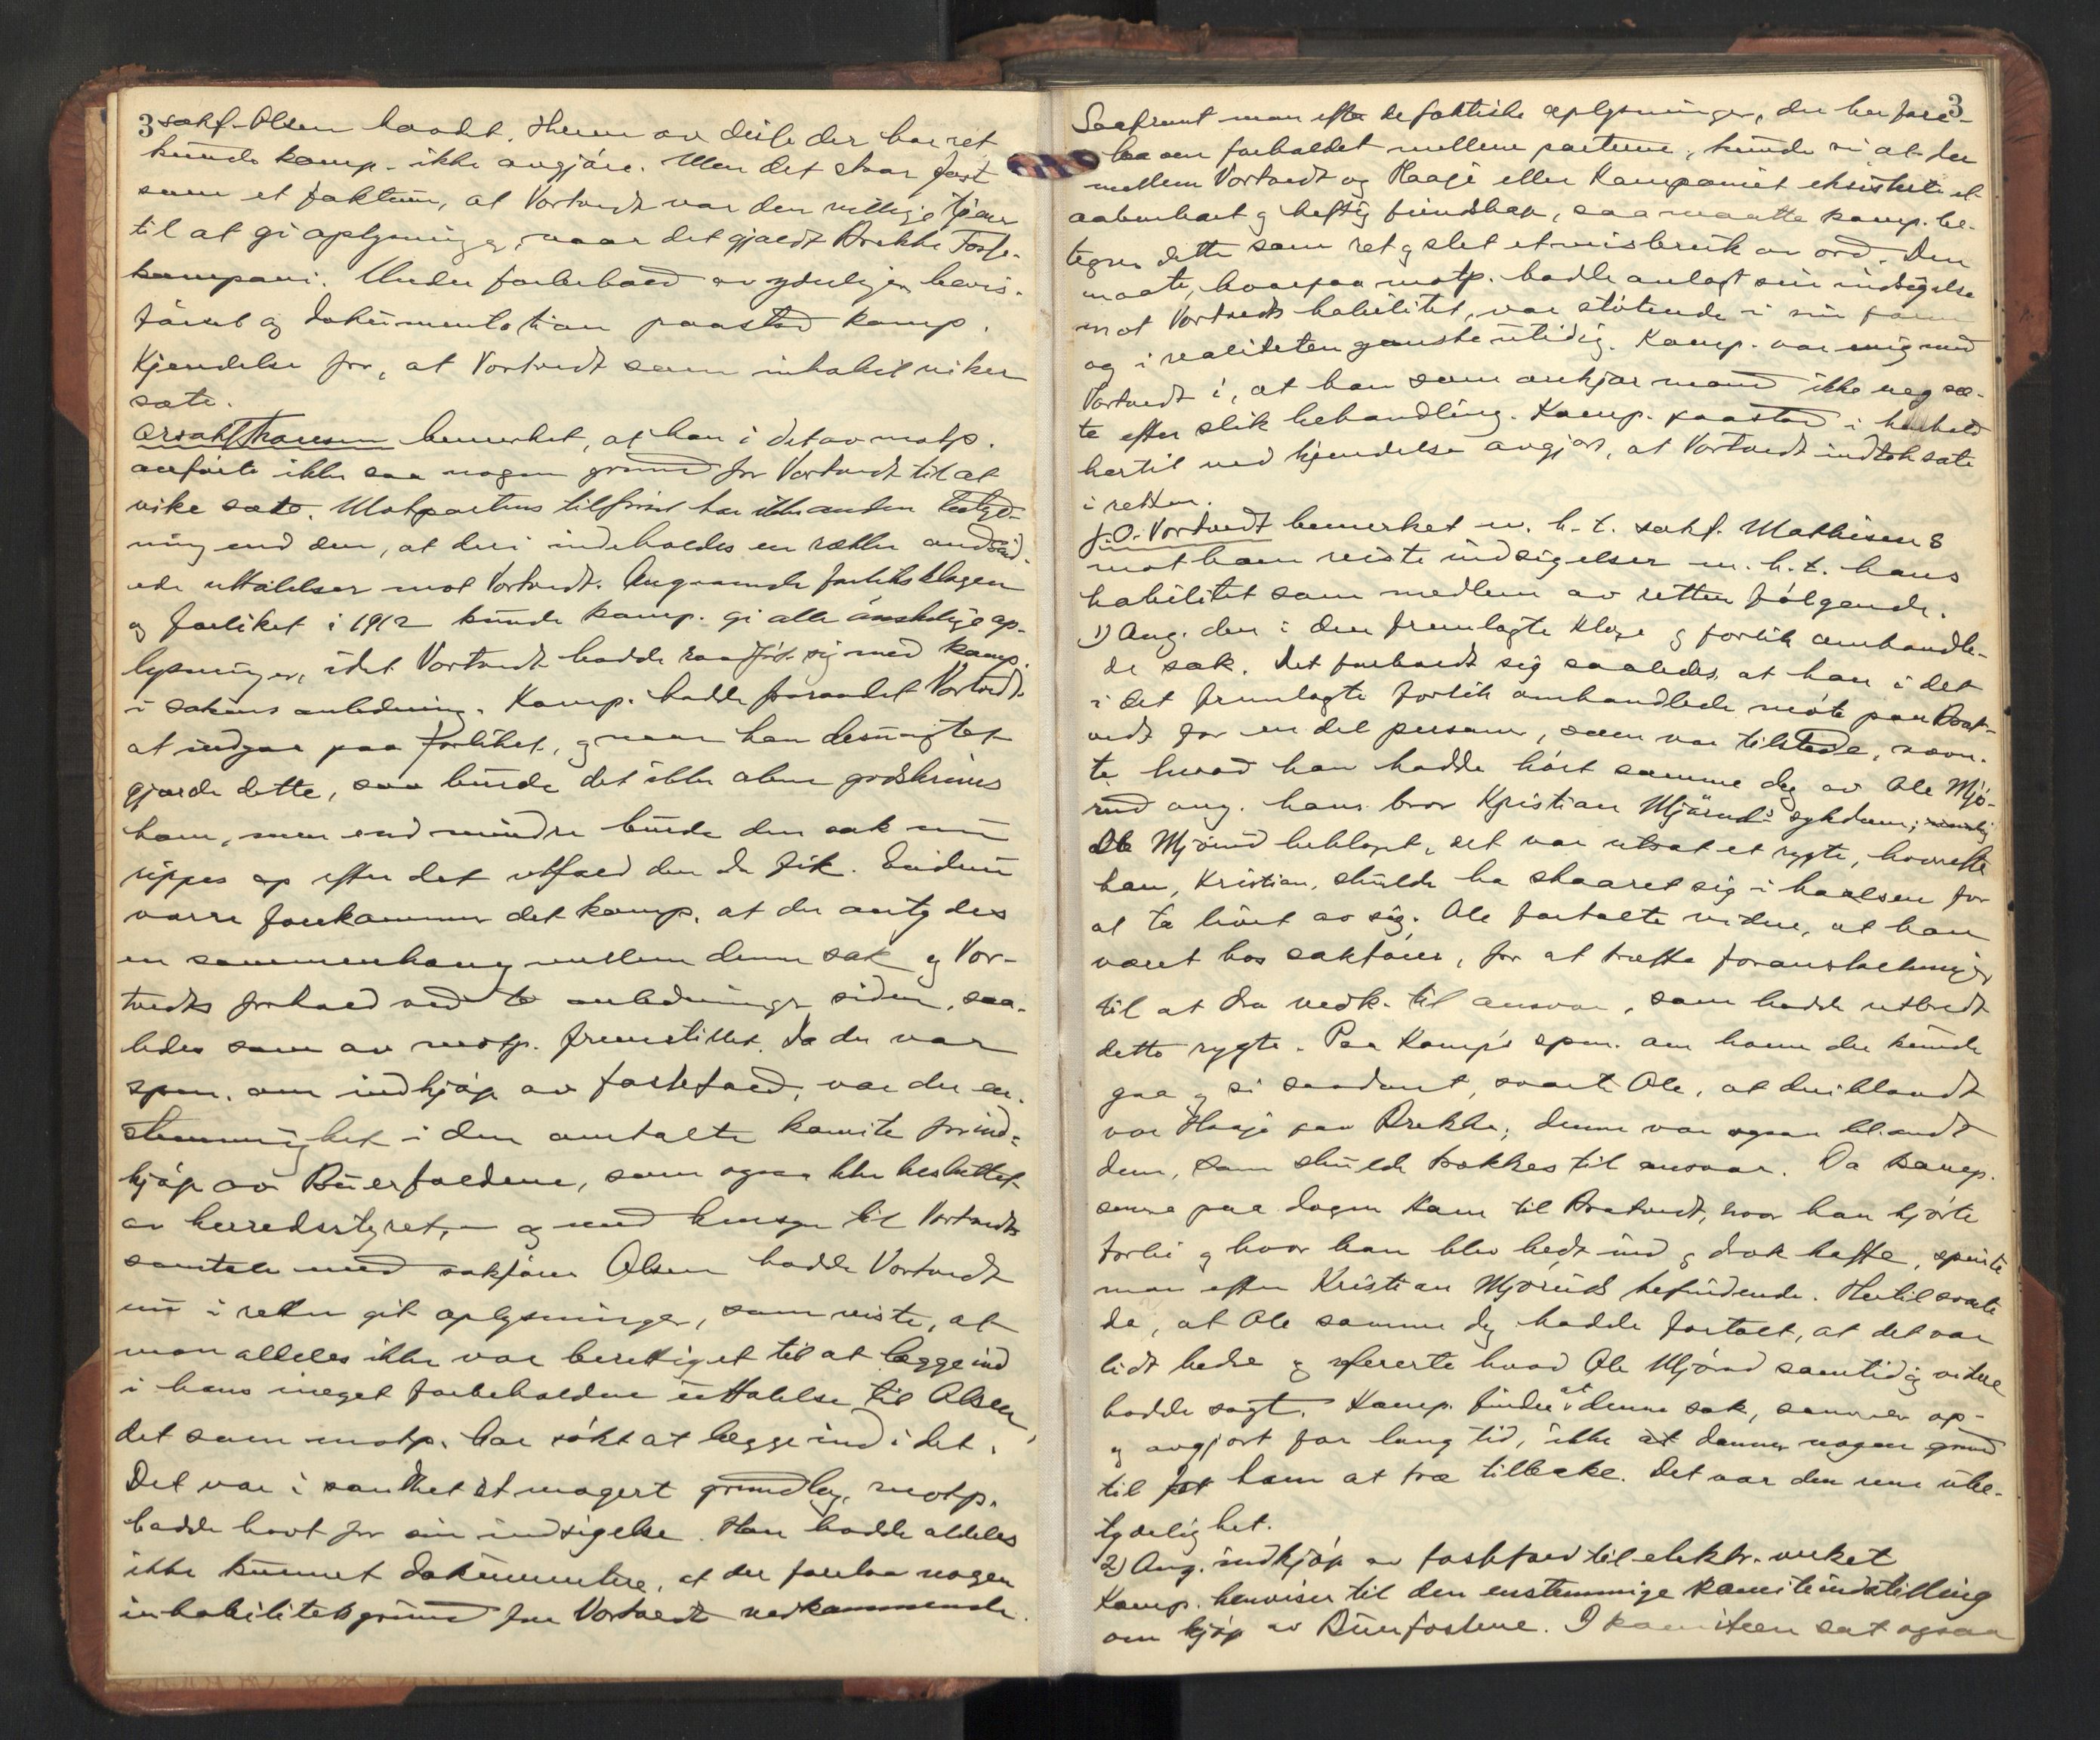 3
sakf. Olsen haadt. Hvem av disse der har ret
kunde komp. ikke avgjøre. Men det staar fast
som et faktum, at Vortvedt var den villige tjener
til at gi oplysninger, naar det gjaldt Brekke Fosse-
kompani. Under forbehold av yderligere bevis-
førsel og dokumentation paastod komp.
Kjendelse for, at Vortvedt som inhabil viker
sæte.
Orsakf Hansen bemerket, at han i det av motp.
anførte ikke saa nogen grund for Vortvedt til at
vike sæte. Motpartens tilførsel har ikke anden betyd-
ning end den, at der i indeholdes en række
ede uttalelser mot Vortvedt. Angaaende forliksklagen
og forliket i 1912 kunde komp. gi alle ønskelige op-
lysninger, idet Vortvedt hadde raadført sig med komp.
i sakens anledning. Komp. hadde fraraadet Vortvedt
at indgaa paa forliket, og naar han desuagtet
gjorde dette, saa burde det ikke alene godskrives
ham, men end mindre burde den sak nu
rippes op efter det utfald den da fik. Endnu
værre forekommer det komp. at der antydes
en sammenhæng mellem denne sak og Vor-
tvedts forhold ved to anledninger siden, saa-
ledes som av motp. fremstillet. Da der var
spm. om indkjøp av fossefald, var der en-
stemmighet i den omtalte komite for ind-
kjøp av Buerfaldene, som ogsaa ble besluttet
av herredsstyret, – og med hensyn til Vortvedts
samtale med sakfører Olsen hadde Vortvedt
nu i retten git oplysninger, som viste, at
man aldeles ikke var berettiget til at lægge ind
i hans meget forbeholdne uttalelse til Olsen,
det som motp. har søkt at lægge ind i det.
Det var i sandhet et magert grundlag, motp.
hadde havt for sin indsigelse. Han hadde aldeles
ikke kunnet dokumentere, at der forelaa nogen
inhabilitetsgrund for Vortvedt vedkommende.
3
Saafremt man efter de faktiske oplysninger, der her fore-
laa om forholdet mellem parterne, kunde si at der
mellem Vortvedt og Haaje eller Kompaniet eksisterte et
aabenbart og heftig fiendskap, saa maatte komp. be-
tegne dette som ret og slet et misbruk av ord. Den
maate, hvorpaa motp. hadde anlagt sin indsigelse
mot Vortvedts habilitet, var støtende i sin form
og i realiteten ganske utidig. Komp. var enig med
Vortvedt i, at han som ankjær mand ikke veg sæ-
te efter slik behandling. Komp. paastod i henhold
hertil ved kjendelse avgjort, at Vortvedt indtok sæte
i retten.
J. O. Vortvedt bemerket m. h. t. sakf. Mathisens
mot ham reiste indsigelser m. h. t. hans
habilitet som medlem av retten følgende.
1) Ang. den i den fremlagte klage og forlik omhandle-
de sak. Det forholdt sig saaledes, at han i det
i det fremlagte forlik omhandlede møte paa Brat-
vedt for en del personer, som var tilstede, nævn-
te hvad han hadde hørt samme dag av Ole Mjø-
rud ang. hans bror Kristian Mjøruds sykdom;
Ole Mjørud beklaget, det var utsat et rygte, hvorefter
han, Kristian, skulde ha skaaret sig i halsen for
at ta livet av sig. Ole fortalte videre, at han
været hos sakfører, for at træffe foranstaltninger
til at dra vedk. til ansvar, som hadde utbredt
dette rygte. Paa komp's spm. om hvem der kunde
gaa og si saadant, svarte Ole, at deriblandt
var Haaje paa Brekke; denne var ogsaa blandt
dem, som skulde trækkes til ansvar. Da komp.
senere paa dagen kom til Bratvedt, hvor han kjørte
forbi og hvor han blev bedt ind og drak kaffe, spurte
man efter Kristian Mjøruds befindende. Hertil svarte
de, at Ole samme dag hadde fortalt, at det var
lidt bedre og refererte hvad Ole Mjørud samtidig videre
hadde sagt. Komp. finder at denne sak, som er op-
og avgjort for lang tid, ikke danner nogen grund
til for ham at træ tilbake. Det var den rene ube-
tydelighet.
2) Ang. indkjøp av fossefald til elektr. verket
Komp. henviser til den enstemmige komiteindstilling
om kjøp av Buerfossene. I komiteen sat ogsaa